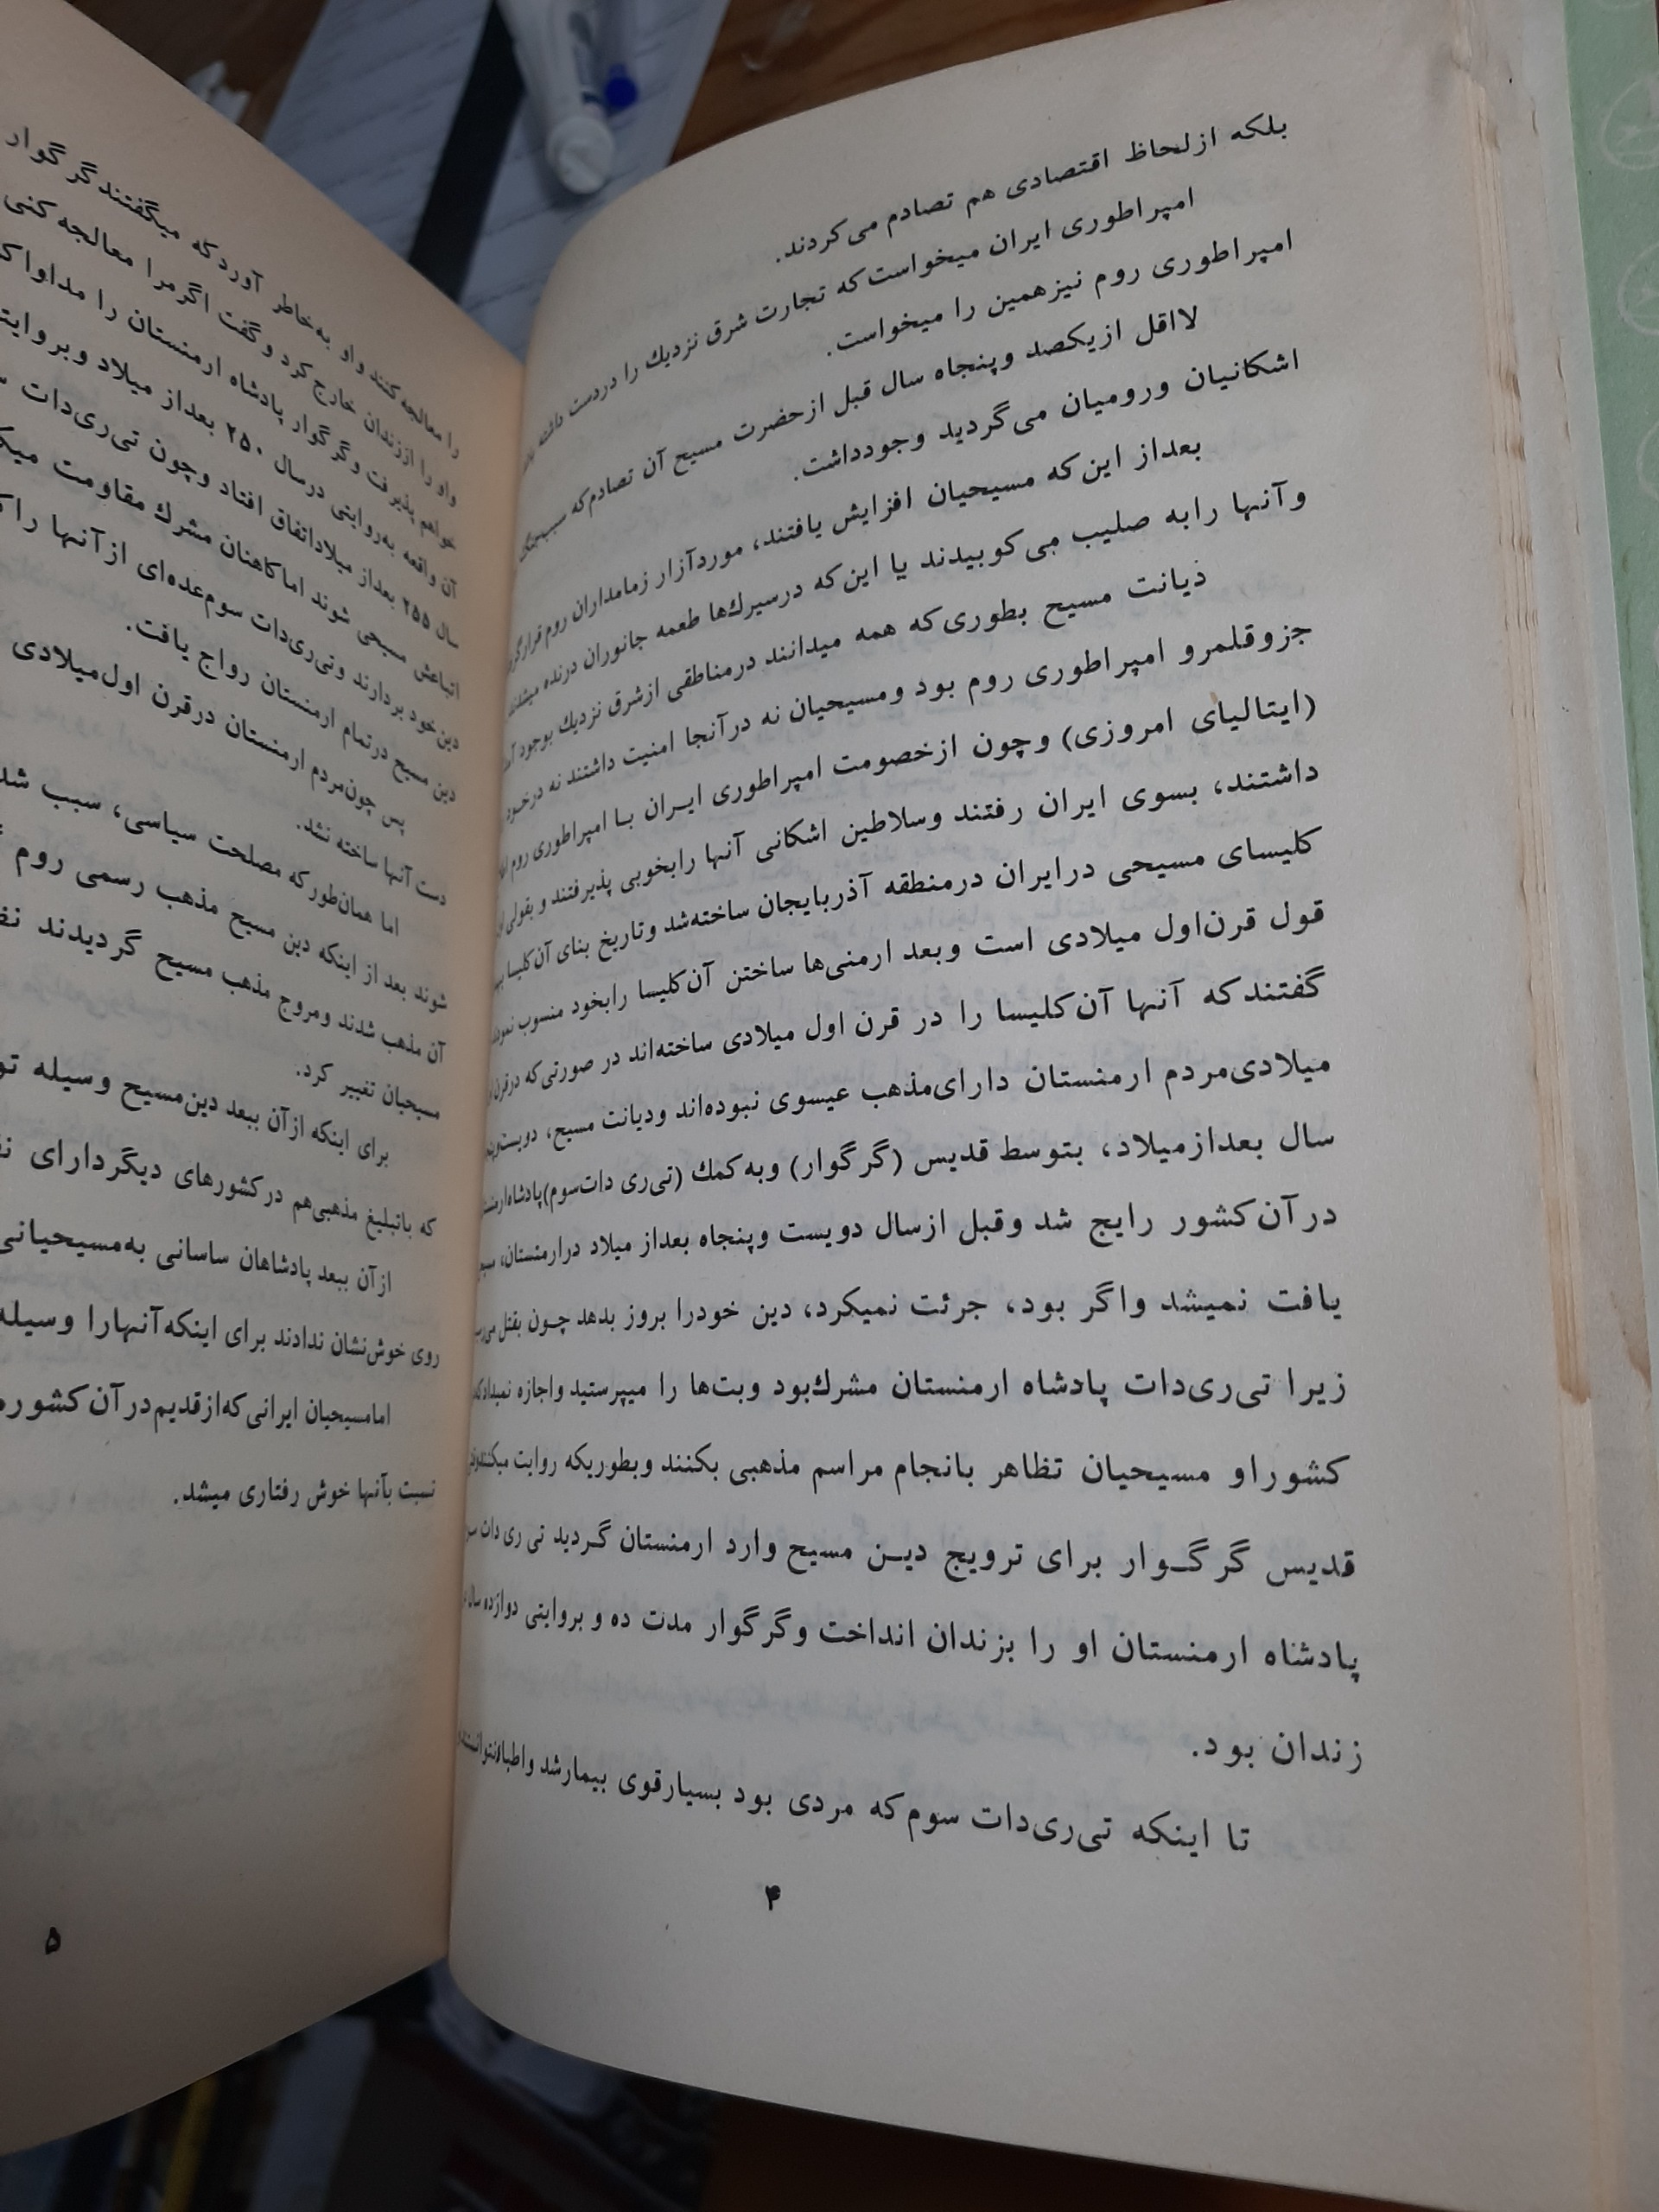 بلکه ازلحاظ اقتصادی هم تصادم می‌کردند.
امپراطوری ایران میخواست که تجارت شرق نزدیك را دردست داشته
امپراطوری روم نیزهمین را میخواست.
لااقل ازیکصد وپنجاه سال قبل ازحضرت مسیح آن تصادم که سبب جنگ
اشکانیان ورومیان می‌گردید وجودداشت.
بعداز این‌که مسیحیان افزایش یافتند، موردآزار زمامداران روم
وآنها رابه صلیب می‌کوبیدند یا این‌که درسیرك‌ها طعمه جانوران درنده میشدند
دیانت مسیح بطوری‌که همه میدانند درمناطقی ازشرق نزدیك بوجود
جزوقلمرو امپراطوری روم بود ومسیحیان نه درآنجا امنیت داشتند نه
(ایتالیای امروزی) وچون ازخصومت امپراطوری ایـران بـا امپراطوری روم
داشتند، بسوی ایران رفتند وسلاطین اشکانی آنها رابخوبی پذیرفتند و بقولی
کلیسای مسیحی درایران درمنطقه آذربایجان ساخته‌شد وتاریخ بنای آن‌کلیسا
قول قرن‌اول میلادی است وبعد ارمنی‌ها ساختن آن‌کلیسا رابخود منسوب
گفتندکه آنها آن‌کلیسا را در قرن اول میلادی ساخته‌اند در صورتی‌که
میلادی‌مردم ارمنستان دارای‌مذهب عیسوی نبوده‌اند ودیانت مسیح،
سال بعدازمیلاد، بتوسط قدیس (گرگوار) وبه کمك (تی‌ری دات‌سوم)
درآن‌کشور رایج شد وقبل ازسال دویست وپنجاه بعداز میلاد درارمنستان،
یافت نمیشد واگر بود، جرئت نمیکرد، دین خودرا بروز بدهد چـون بقتل
زیرا تی‌ری‌دات پادشاه ارمنستان مشرك‌بود وبت‌ها را میپرستید واجازه
کشوراو مسیحیان تظاهر بانجام مراسم مذهبی بکنند وبطوریکه روایت
قدیس گرگـوار برای ترویج دیـن مسیح وارد ارمنستان گـردید تی‌ری دات
پادشاه ارمنستان او را بزندان انداخت وگرگوار مدت ده و بروایتی دوازده سال
زندان بود.
تا اینکه تی‌ری‌دات سوم‌که مردی بود بسیارقوی بیمارشد واطباء
۴
را معالجه کنند واو به‌خاطر آوردکه میگفتندگرگوار
واو را اززندان خارج کرد وگفت اگرمرا معالجه کنی
خواهم پذیرفت وگرگوار پادشاه ارمنستان را
آن واقعه به‌روایتی درسال ۲۵۰ بعداز میلاد
سال ۲۵۵ بعداز میلاداتفاق افتاد وچون تی‌ری‌دات
اتباعش مسیحی شوند اماکاهنان مشرك مقاومت
دین‌خود بردارند وتی‌ری‌دات سوم‌عده‌ای ازآنها را
دین مسیح درتمام ارمنستان رواج یافت.
پس چون‌مردم ارمنستان درقرن اول‌میلادی
دست آنها ساخته نشد.
اما همان‌طورکه مصلحت سیاسی، سبب
شوند بعد از اینکه دین مسیح مذهب رسمی روم
آن مذهب شدند ومروج مذهب مسیح گردیدند
مسیحیان تغییر کرد.
برای اینکه ازآن ببعد دین‌مسیح وسیله
که باتبلیغ مذهبی‌هم درکشورهای دیگردارای
ازآن ببعد پادشاهان ساسانی به‌مسیحیانی
روی خوش‌نشان ندادند برای اینکه‌آنهارا وسیله
امامسیحیان ایرانی‌که‌ازقدیم‌درآن‌کشور
نسبت بآنها خوش رفتاری میشد.
۵